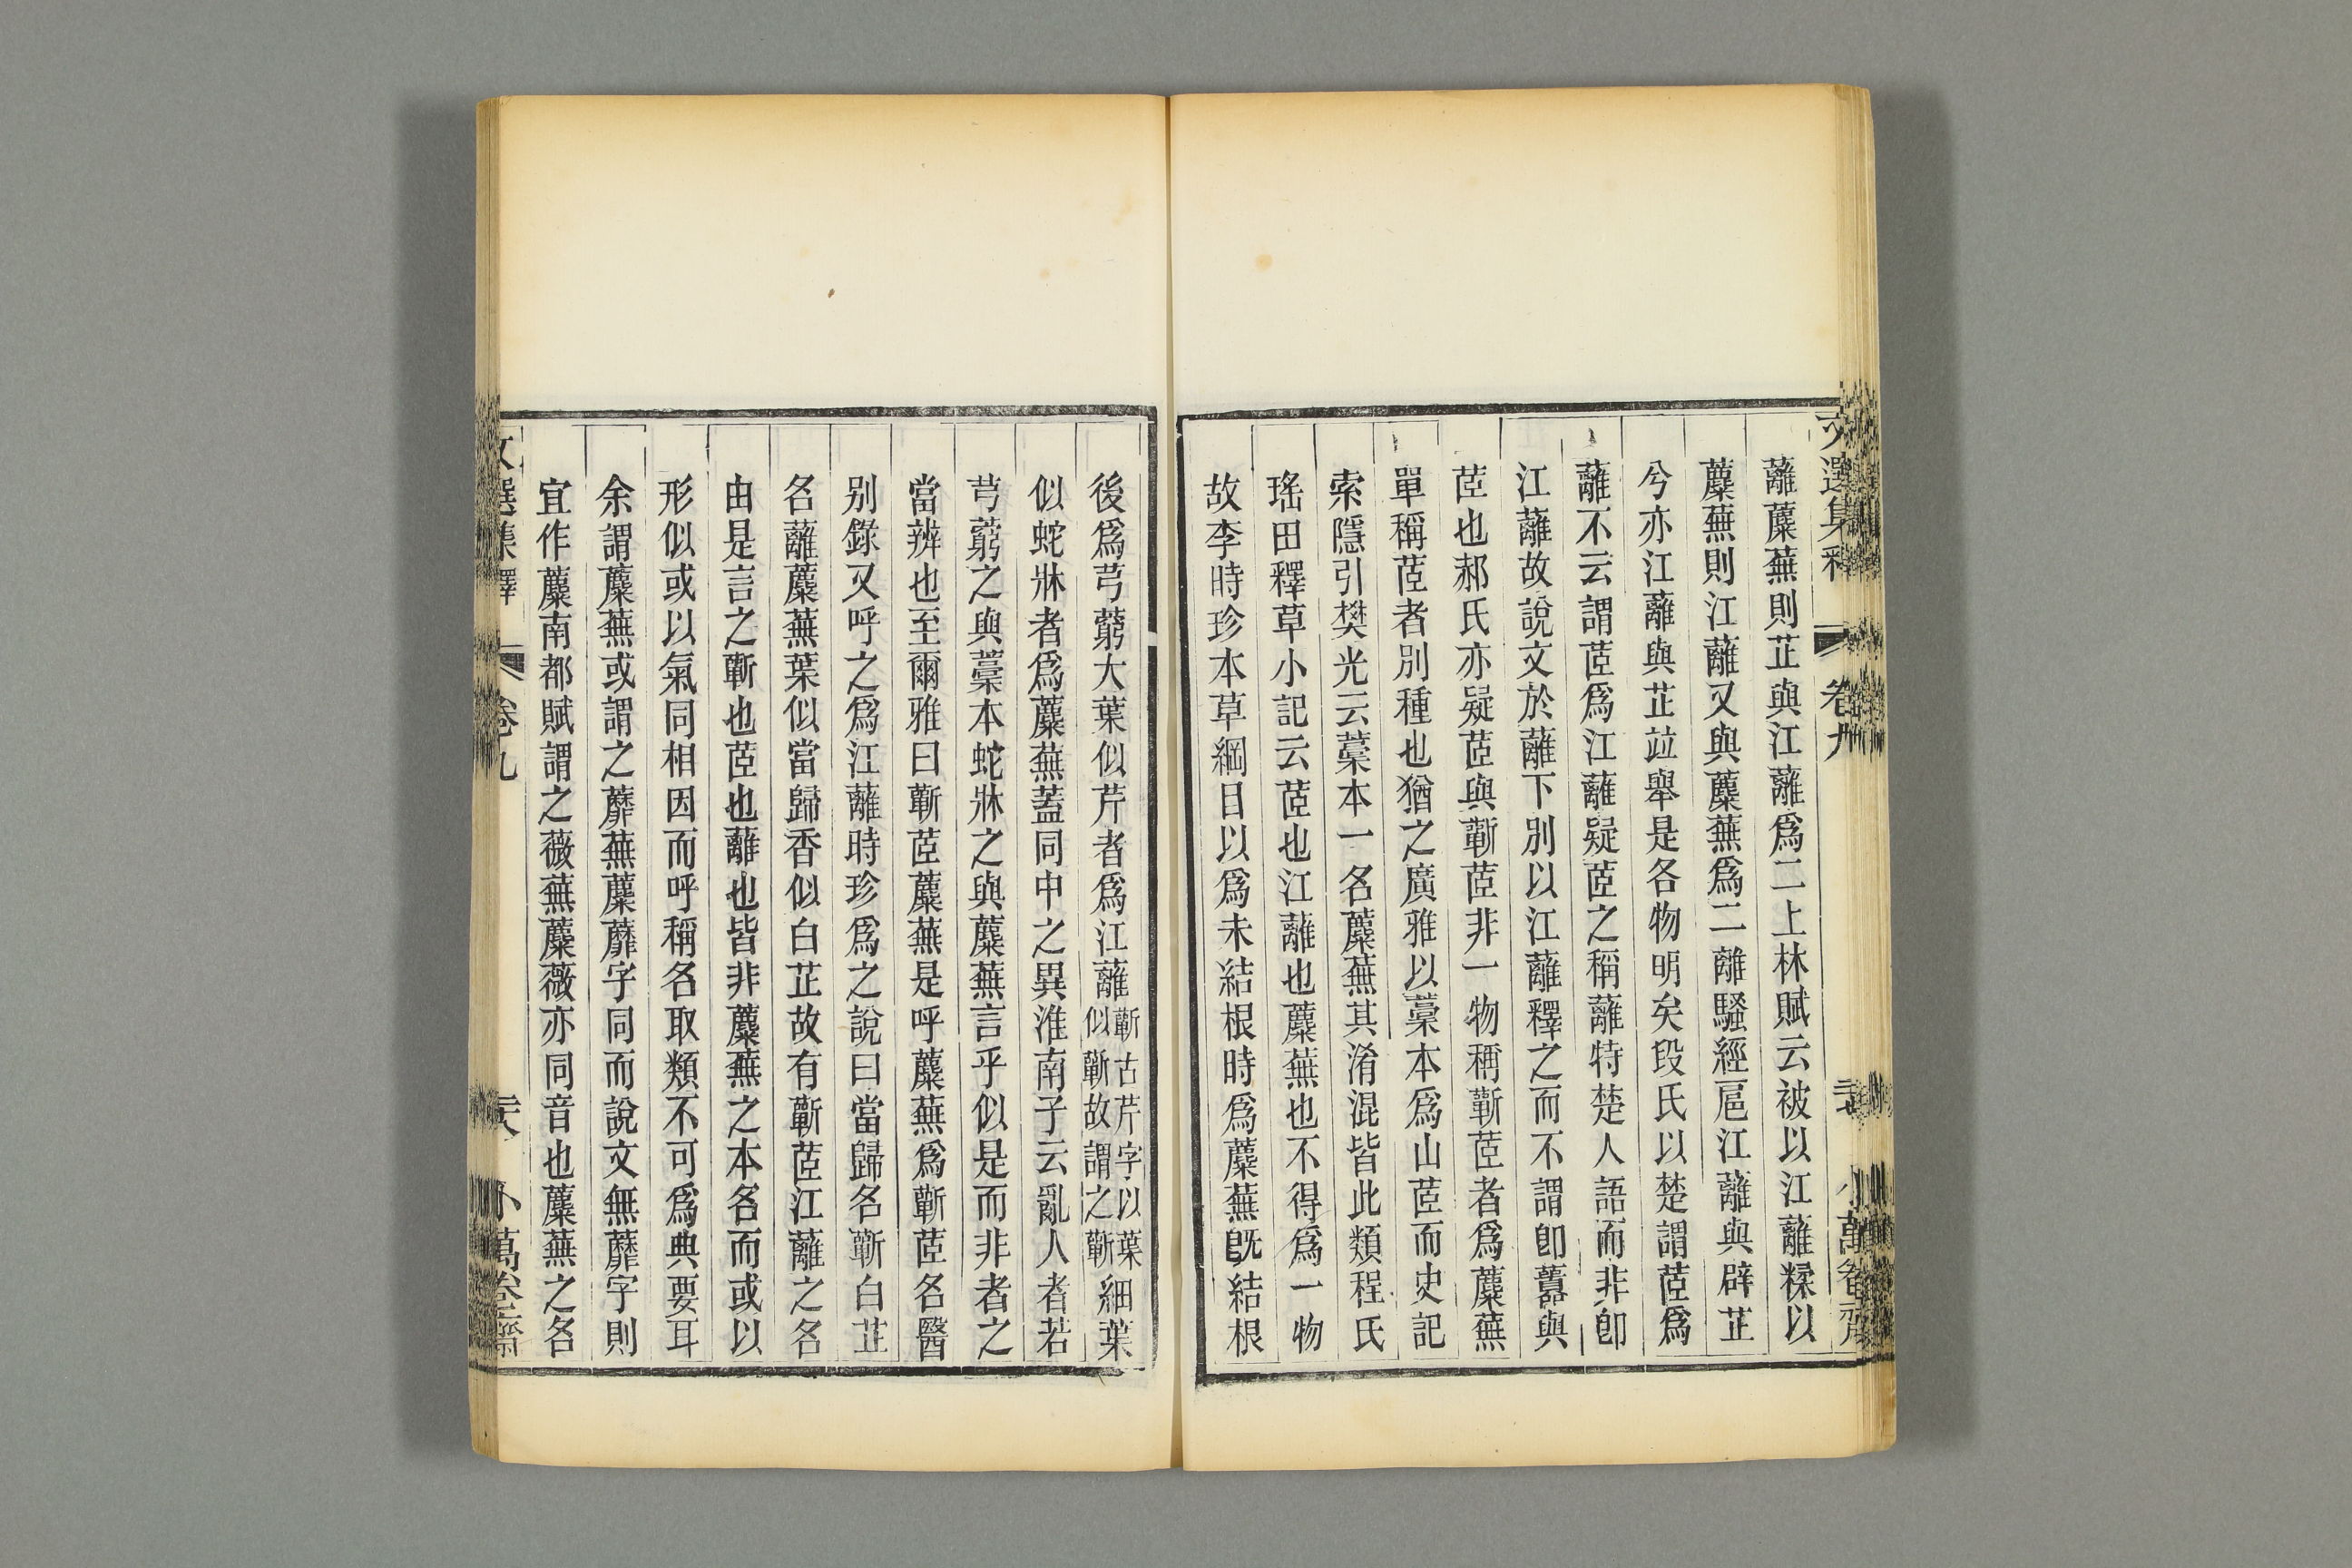 文選集釋 卷九 小萬卷齋
蘺蘪蕪則芷與江蘺爲二上林賦云被以江蘺糅以
蘪蕪則江蘺又與蘪蕪爲二離騷經扈江蘺與辟芷
兮亦江蘺與芷竝舉是各物明矣段氏以楚謂茝爲
蘺不云謂茝爲江蘺疑茝之稱蘺特楚人語而非卽
江蘺故說文於蘺下別以江蘺釋之而不謂卽虈與
茝也郝氏亦疑茝與蘄茝非一物稱蘄茝者爲蘪蕪
單稱茝者別種也猶之廣雅以藁本爲山茝而史記
索隱引樊光云藁本一名蘪蕪其淆混皆此類程氏
瑤田釋草小記云茝也江蘺也蘪蕪也不得爲一物
故李時珍本草綱目以爲未結根時爲蘪蕪旣結根
後爲芎藭大葉似芹者爲江蘺蘄古芹字以葉似蘄故謂之蘄細葉
似蛇牀者爲蘪蕪蓋同中之異淮南子云亂人者若
芎藭之與藁本蛇牀之與蘪蕪言乎似是而非者之
當辨也至爾雅曰蘄茝蘪蕪是呼蘪蕪爲蘄茝名醫
別錄又呼之爲江蘺時珍爲之說曰當歸名蘄白芷
名蘺蘪蕪葉似當歸香似白芷故有蘄茝江蘺之名
由是言之蘄也茝也蘺也皆非蘪蕪之本名而或以
形似或以氣同相因而呼稱名取類不可爲典要耳
余謂蘪蕪或謂之蘼蕪蘪蘼字同而說文無蘼字則
宜作蘪南都賦謂之薇蕪蘪薇亦同音也蘪蕪之名
文選集釋 卷九 小萬卷齋